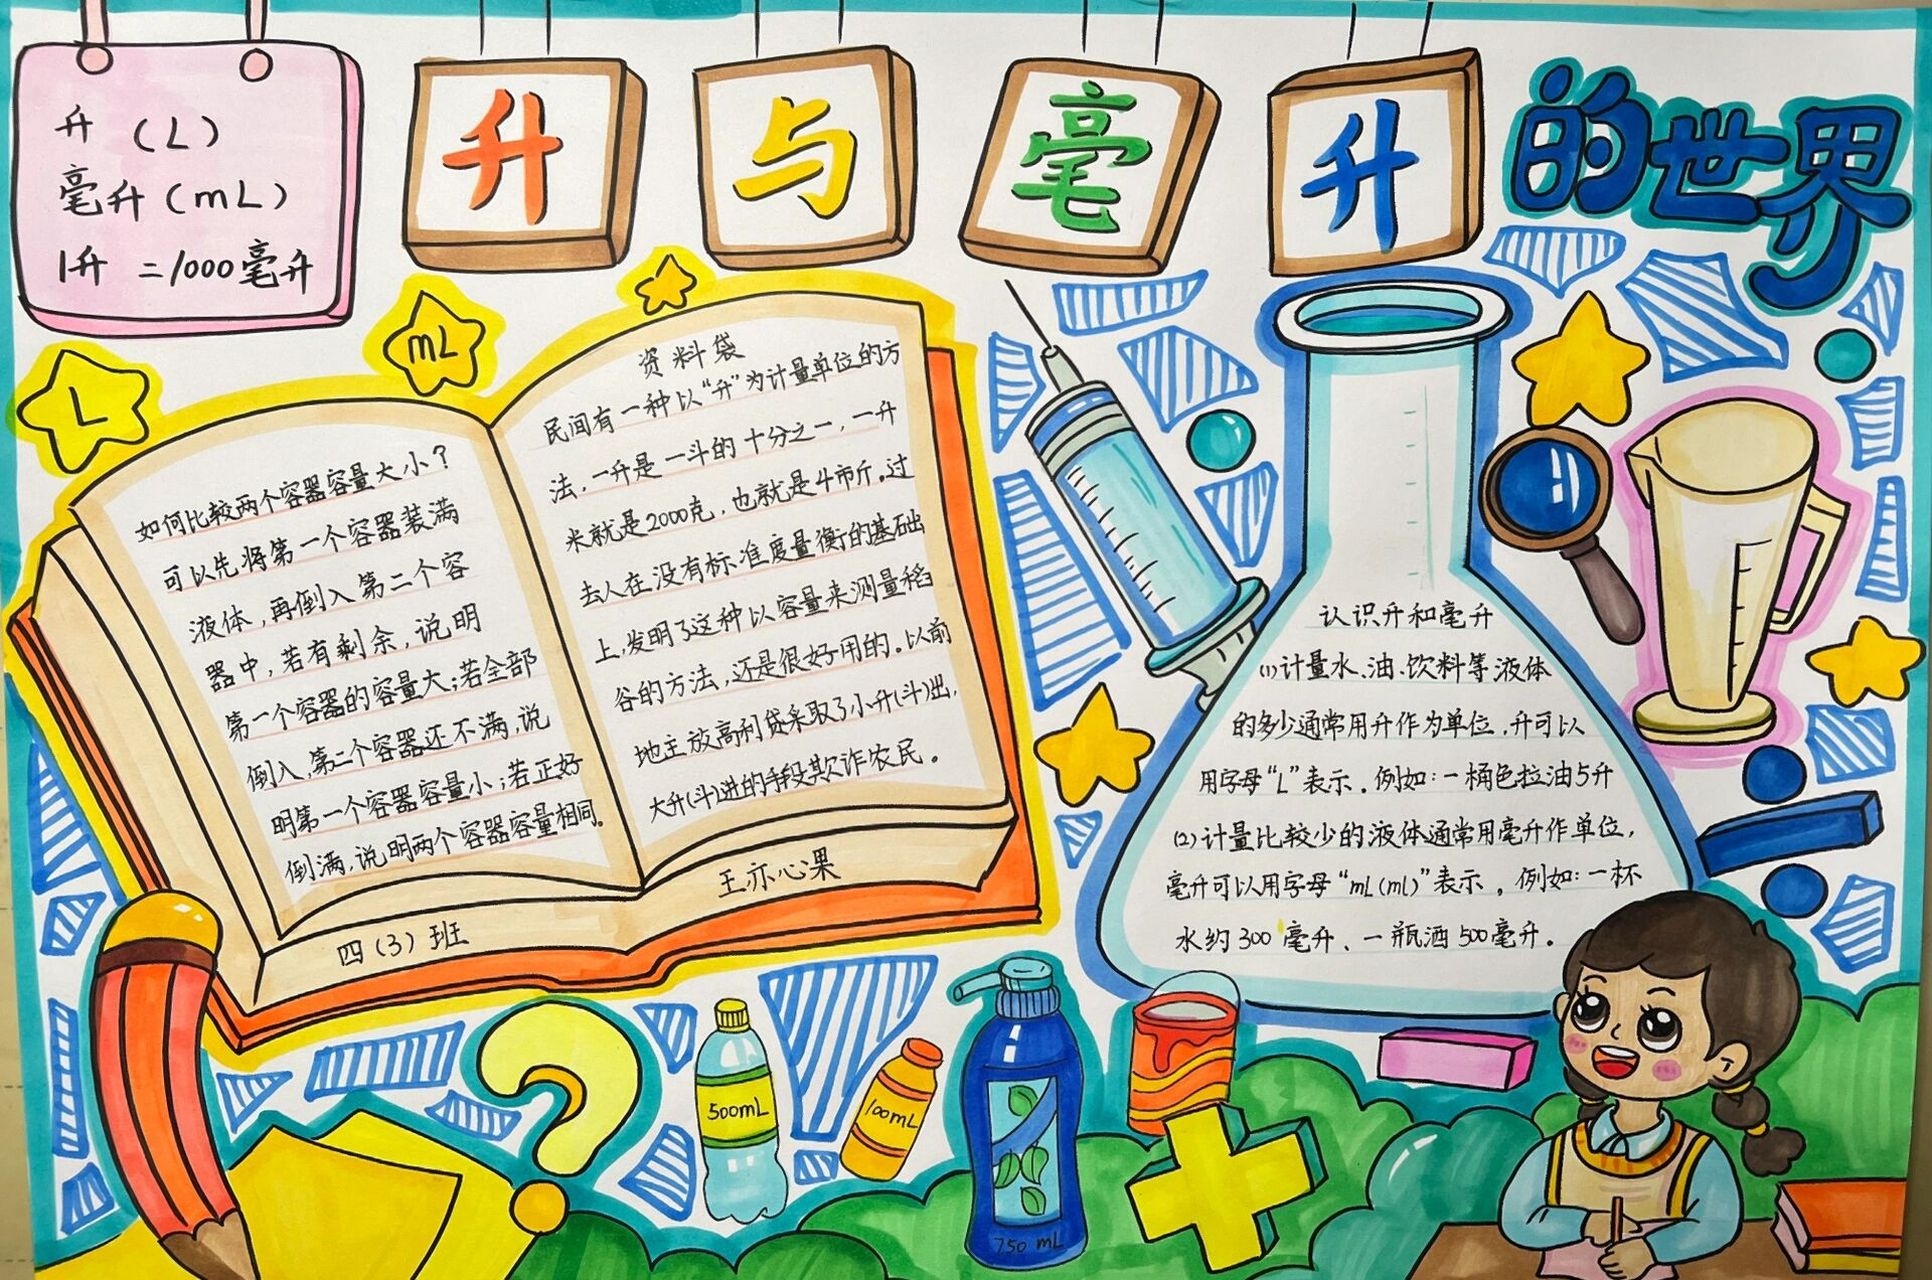 升（L）
毫升（mL）
1升 =1000毫升
升与毫升的世界
L
mL
如何比较两个容器容量大小？
可以先将第一个容器装满
液体，再倒入第二个容
器中，若有剩余，说明
第一个容器的容量大；若全部
倒入，第二个容器还不满，说
明第一个容器容量小；若正好
倒满，说明两个容器容量相同。
四（3）班
资料袋
民间有一种以“升”为计量单位的方
法，一升是一斗的十分之一，一升
米就是2000克，也就是4市斤。过
去人在没有标准度量衡的基础
上，发明了这种以容量来测量稻
谷的方法，还是很好用的。以前
地主放高利贷采取了小升(斗)出，
大升(斗)进的手段欺诈农民。
王亦心果
认识升和毫升
(1)计量水、油、饮料等液体
的多少通常用升作为单位，升可以
用字母“L”表示。例如：一桶色拉油5升
(2)计量比较少的液体通常用毫升作单位，
毫升可以用字母“mL(ml)”表示。例如：一杯
水约300毫升、一瓶酒500毫升。
500mL
100mL
750 mL